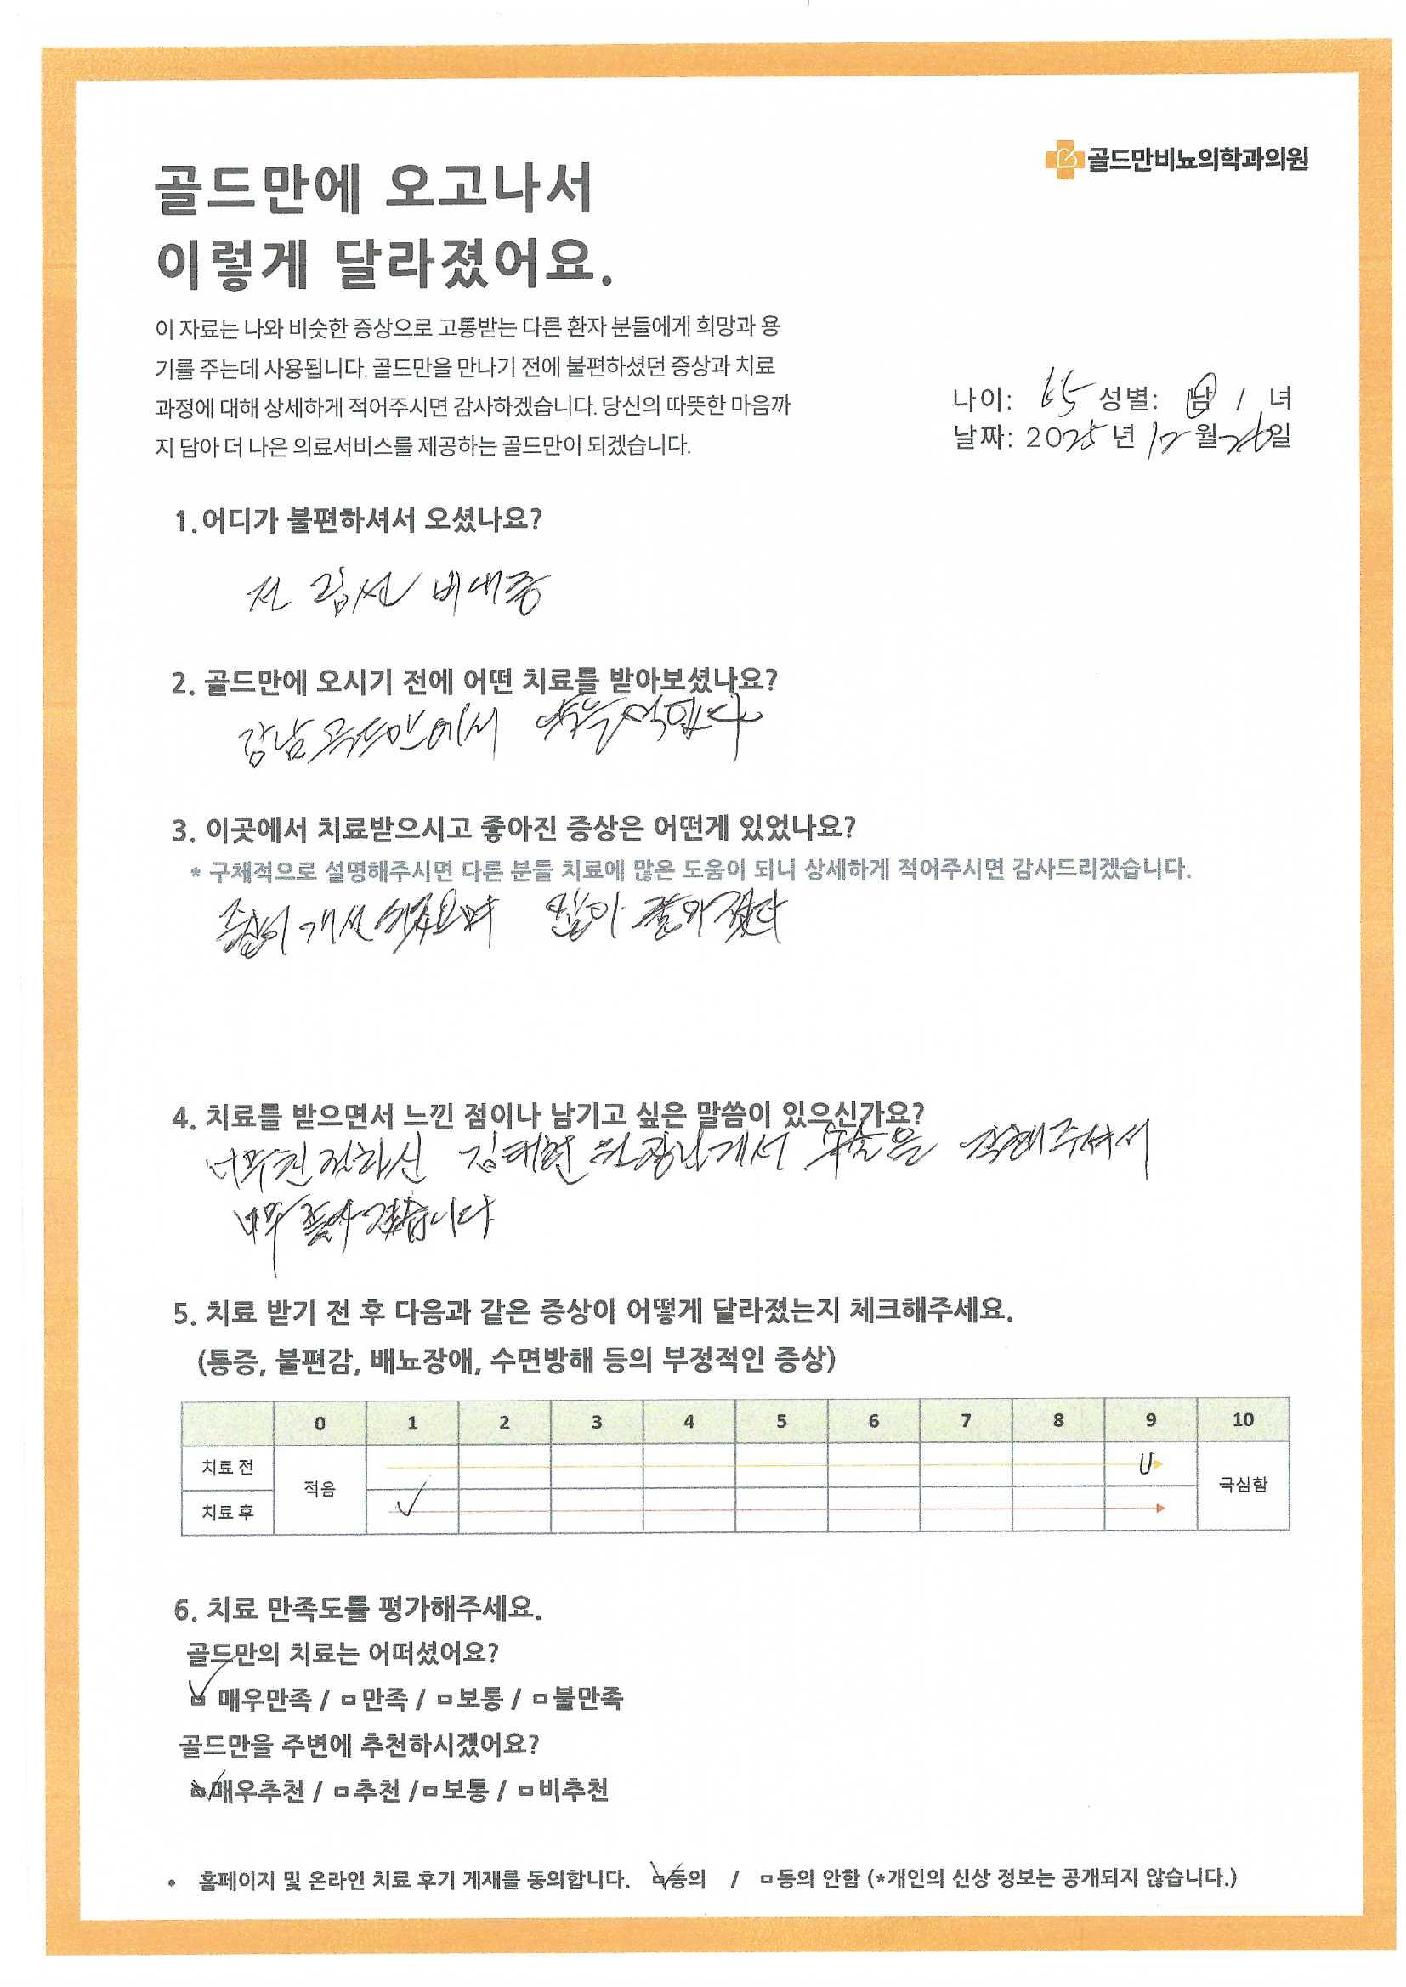 골드만비뇨의학과의원
골드만에 오고나서
이렇게 달라졌어요.
이 자료는 나와 비슷한 증상으로 고통받는 다른 환자 분들에게 희망과 용
기를 주는데 사용됩니다. 골드만을 만나기 전에 불편하셨던 증상과 치료
과정에 대해 상세하게 적어주시면 감사하겠습니다. 당신의 따뜻한 마음까
지 담아 더 나은 의료서비스를 제공하는 골드만이 되겠습니다.
나이: 65 성별: 남 / 녀
날짜: 2025년 12월 일
1. 어디가 불편하셔서 오셨나요?
전립선 비대증
2. 골드만에 오시기 전에 어떤 치료를 받아보셨나요?
강남골드만에서
3. 이곳에서 치료받으시고 좋아진 증상은 어떤게 있었나요?
* 구체적으로 설명해주시면 다른 분들 치료에 많은 도움이 되니 상세하게 적어주시면 감사드리겠습니다.
많이
4. 치료를 받으면서 느낀 점이나 남기고 싶은 말씀이 있으신가요?
너무친절하신 김태헌 원장님께서 수술을 해주셔서
너무 좋아졌습니다
5. 치료 받기 전 후 다음과 같은 증상이 어떻게 달라졌는지 체크해주세요.
(통증, 불편감, 배뇨장애, 수면방해 등의 부정적인 증상)
0 1 2 3 4 5 6 7 8 9 10
치료 전
적음 극심함
치료 후
6. 치료 만족도를 평가해주세요.
골드만의 치료는 어떠셨어요?
매우만족 / □ 만족 / □ 보통 / □ 불만족
골드만을 주변에 추천하시겠어요?
매우추천 / □ 추천 / □ 보통 / □ 비추천
• 홈페이지 및 온라인 치료 후기 게재를 동의합니다. 동의 / □ 동의 안함 (*개인의 신상 정보는 공개되지 않습니다.)